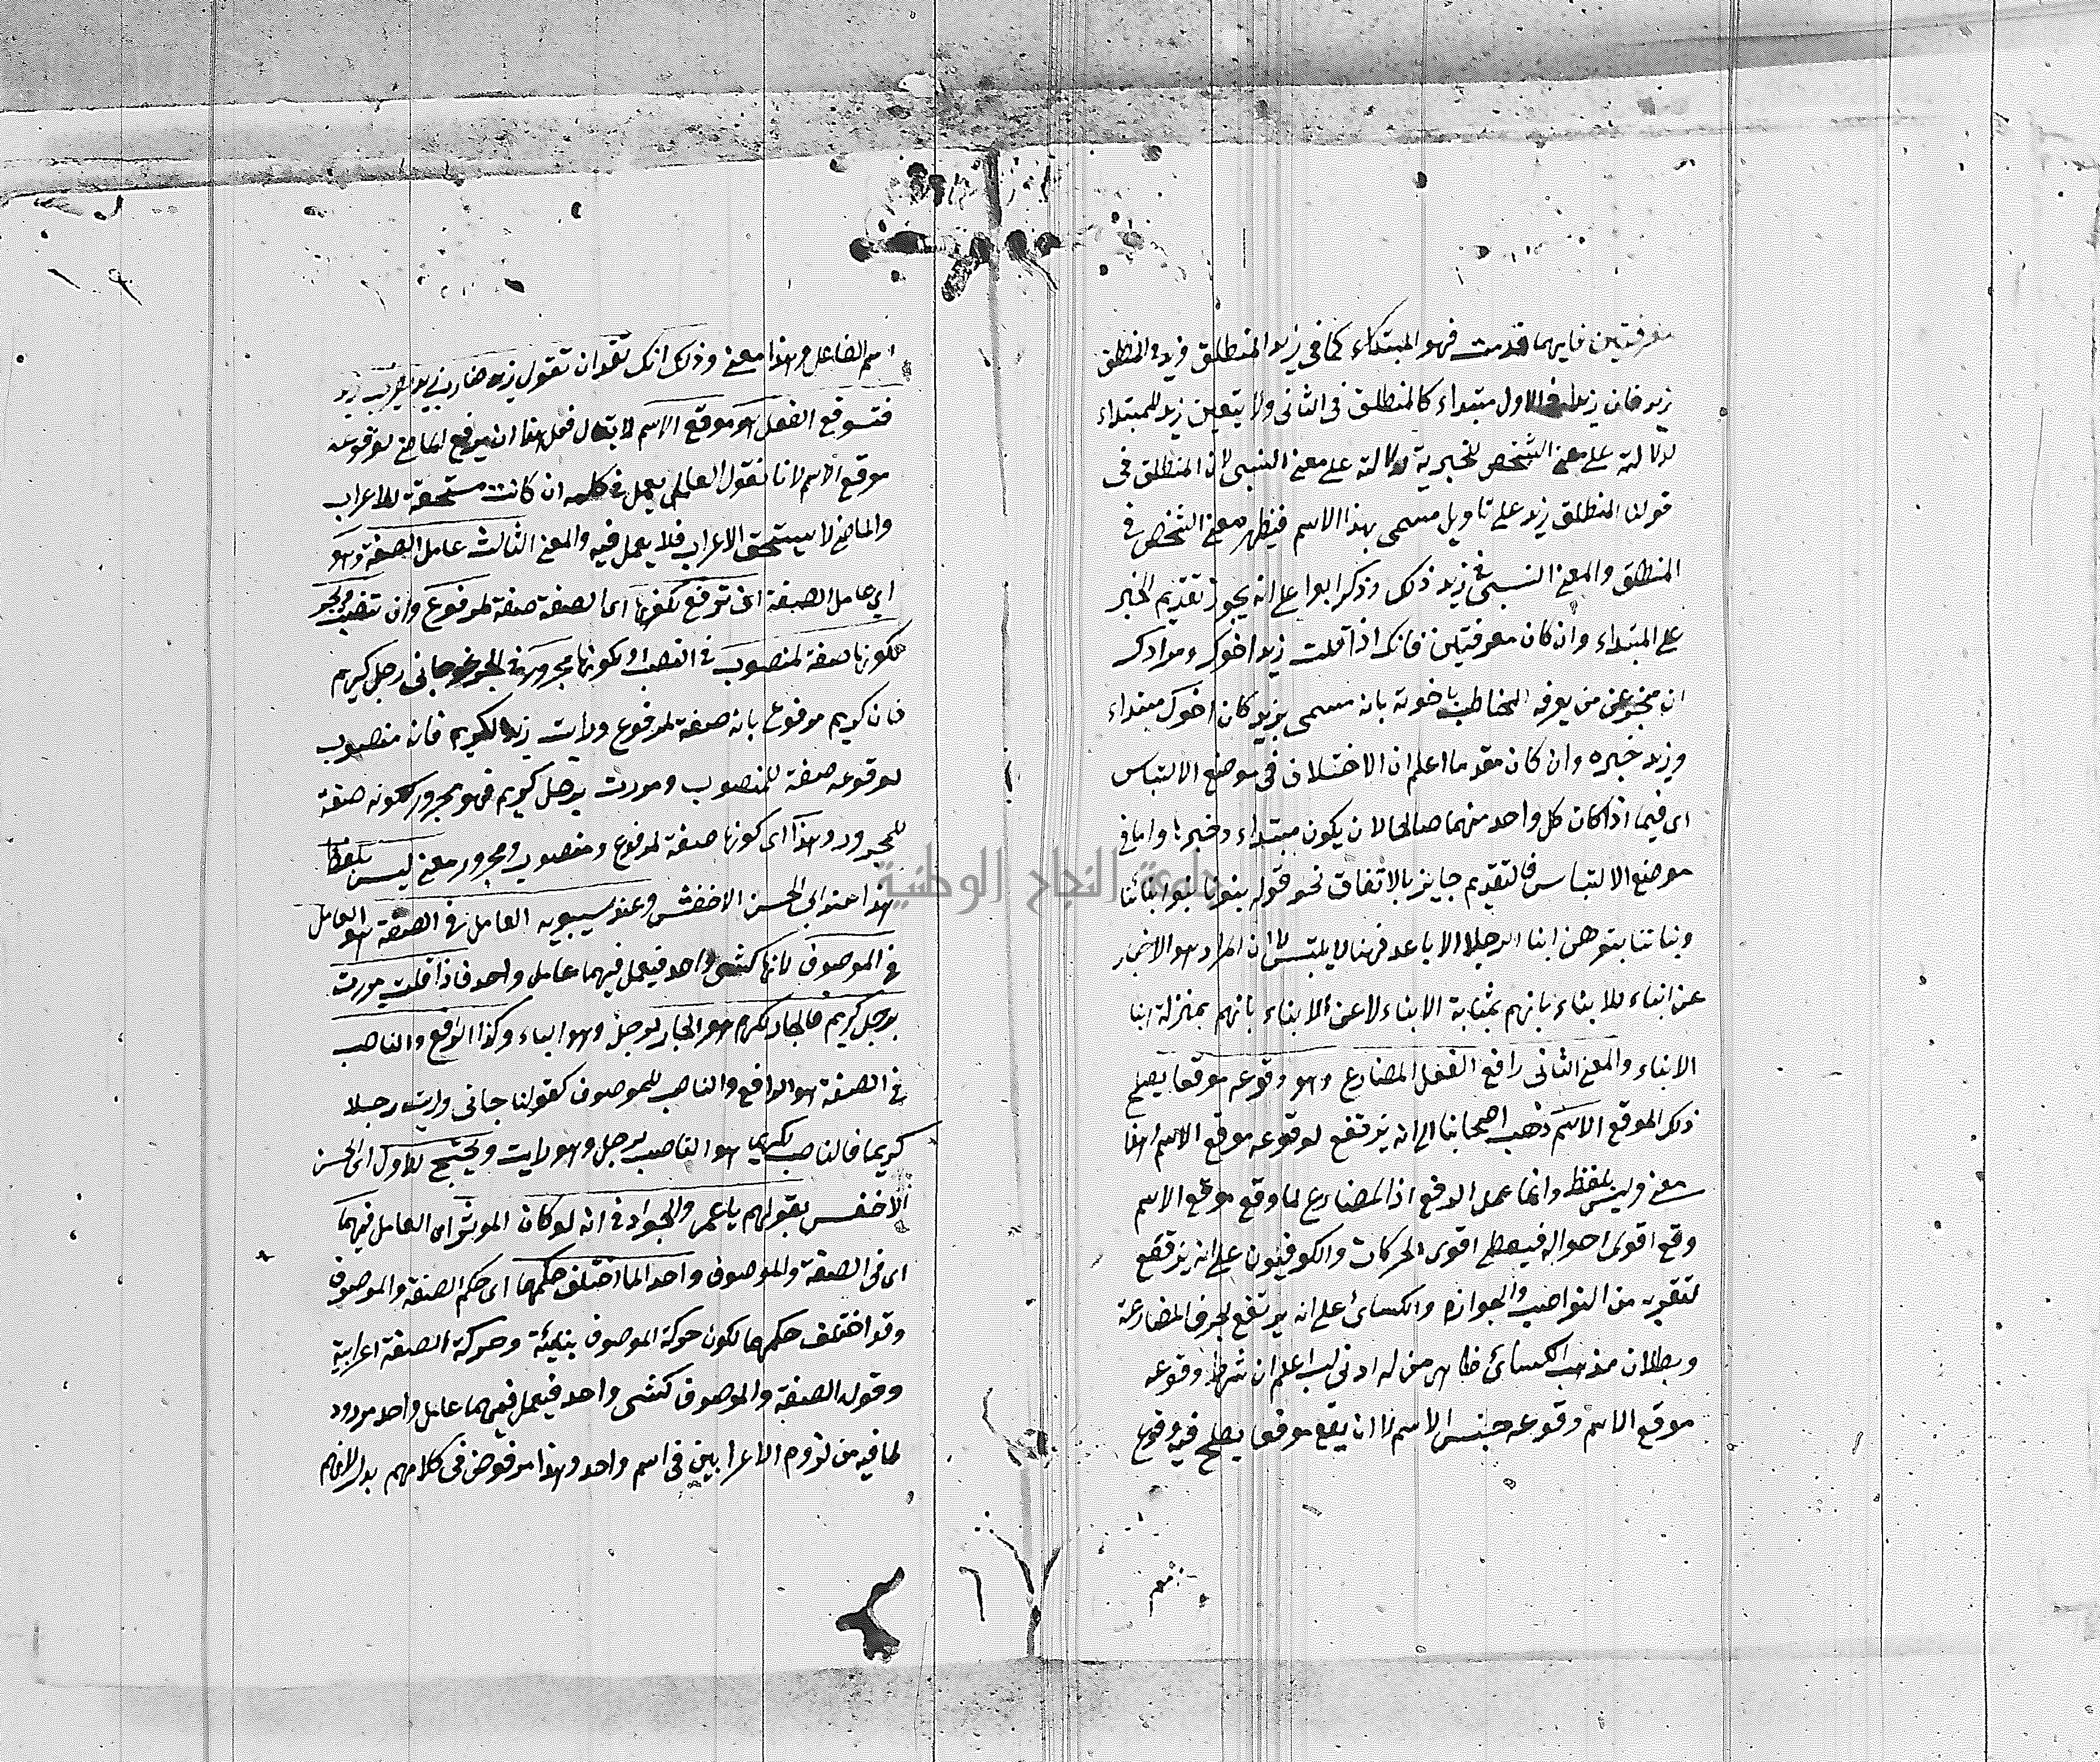 معرفتين فايهما قدمت فهو المبتداء كما في زيد المنطلق فزيد في المنطلق
زيد فان زيدا في الاول مبتداء كالمنطلق في الثاني ولا يتعين زيد للمبتداء
لدلالته على معنى الشخص للخبرية لدلالته على معنى النسبي لان المنطلق في
قولنا المنطلق زيد على تاويل مسمى بهذا الاسم فيظهر معنى الشخص في
المنطلق والمعنى النسبي في زيد ذلك وذكر ابوا على انه يجوز تقديم الخبر
على المبتداء وان كان معرفتين فانك اذا قلت زيد اخوك ومرادك
ان تخبر عن من يعرفه المخاطب باخوته بانه مسمى بزيد كان اخوك مبتداء
وزيد خبره وان كان مقدما اعلم ان الاختلاف في موضع الالتباس
اى فيما اذا كان كل واحد منهما صالحا لان يكون مبتداء وخبرا واما في
موضع الالتباس فالتقديم جايز بالاتفاق نحو قوله بنونا بنوا ابنائنا
وبناتنا بنوهن ابنا الرجال الاباعد فهنا لا يلتبس لان المراد هو الاخبار
عن ابناء للابناء بانهم بمثابة الابناء لا عن الابناء بانهم بمنزلة ابنا
الابناء والمعنى الثاني رافع الفعل المضارع وهو وقوعه موقعا يصلح
ذلك الموقع الاسم ذهب اصحابنا الى انه يرتفع لوقوعه موقع الاسم وهذا
معنى وليس بلفظ وانما عمل الرفع اذ المضارع لما وقع موقع الاسم
وقع اقوى احواله فيعطى اقوى الحركات والكوفيون على انه يرتفع
لتعريه من النواصب والجوازم والكسائ على انه يرتفع بحرف المضارعة
وبطلان مذهب الكسائ ظاهر من له ادنى لب اعلم ان شرط وقوعه
موقع الاسم وقوعه جنس الاسم لا ان يقع موقعا يصلح فيه وقوع
اسم الفاعل وهذا معنى وذلك انك تقدر ان تقول زيد ضارب في زيد يضرب زيد
فتوقع الفعل هو موقع الاسم لا يقال فعلى هذا ان يرفع الماضي لوقوعه
موقع الاسم لانا نقول العامل يعمل في كلمة ان كانت مستحقة للاعراب
والماضي لا يستحق الاعراب فلا يعمل فيه والمعنى الثالث عامل الصفة وهو
اي عامل الصفة ان ترفع لكونها اى الصفة صفة لمرفوع وان تنصب وتجر
لكونها صفة لمنصوب في النصب او لكونها مجرور في الجر نحو جاني رجل كريم
فان كريم مرفوع بانه صفة لمرفوع ورايت زيدا لكريم فانه منصوب
لوقوعه صفة للمنصوب ومررت برجل كريم فهو مجرور لكونه صفة
للمجرور وهذا اى كونها صفة لمرفوع ومنصوب ومجرور معنى ليس بلفظ
هذا عند ابى الحسن الاخفش وعند سيبويه العامل في الصفة هو العامل
في الموصوف لانها كشى واحد فيعمل فيهما عامل واحد فاذا قلت مررت
برجل كريم فالجار لكريم هو الجار لرجل وهو الباء وكذا الرافع والناصب
في الصفة هو الرافع والناصب للموصوف كقولنا جانى ورايت رجلا
كريما فالناصب لكريم هو الناصب لرجل وهو رايت ويحتج للاول اى الحسن
الاخفس بقولهم يا عمر والجواد في انه لو كان الموثر اى العامل فيهما
اى في الصفة والموصوف واحد لما اختلف حكمهما اى حكم الصفة والموصوف
وقد اختلف حكمهما لكون حركة الموصوف بنائية وحركة الصفة اعرابية
وقوله الصفة والموصوف كشى واحد فيعمل فيهما عامل واحد مردود
لما فيه من لزوم الاعرابين في اسم واحد وهذا مرفوض في كلامهم
جامعة النجاح الوطنية